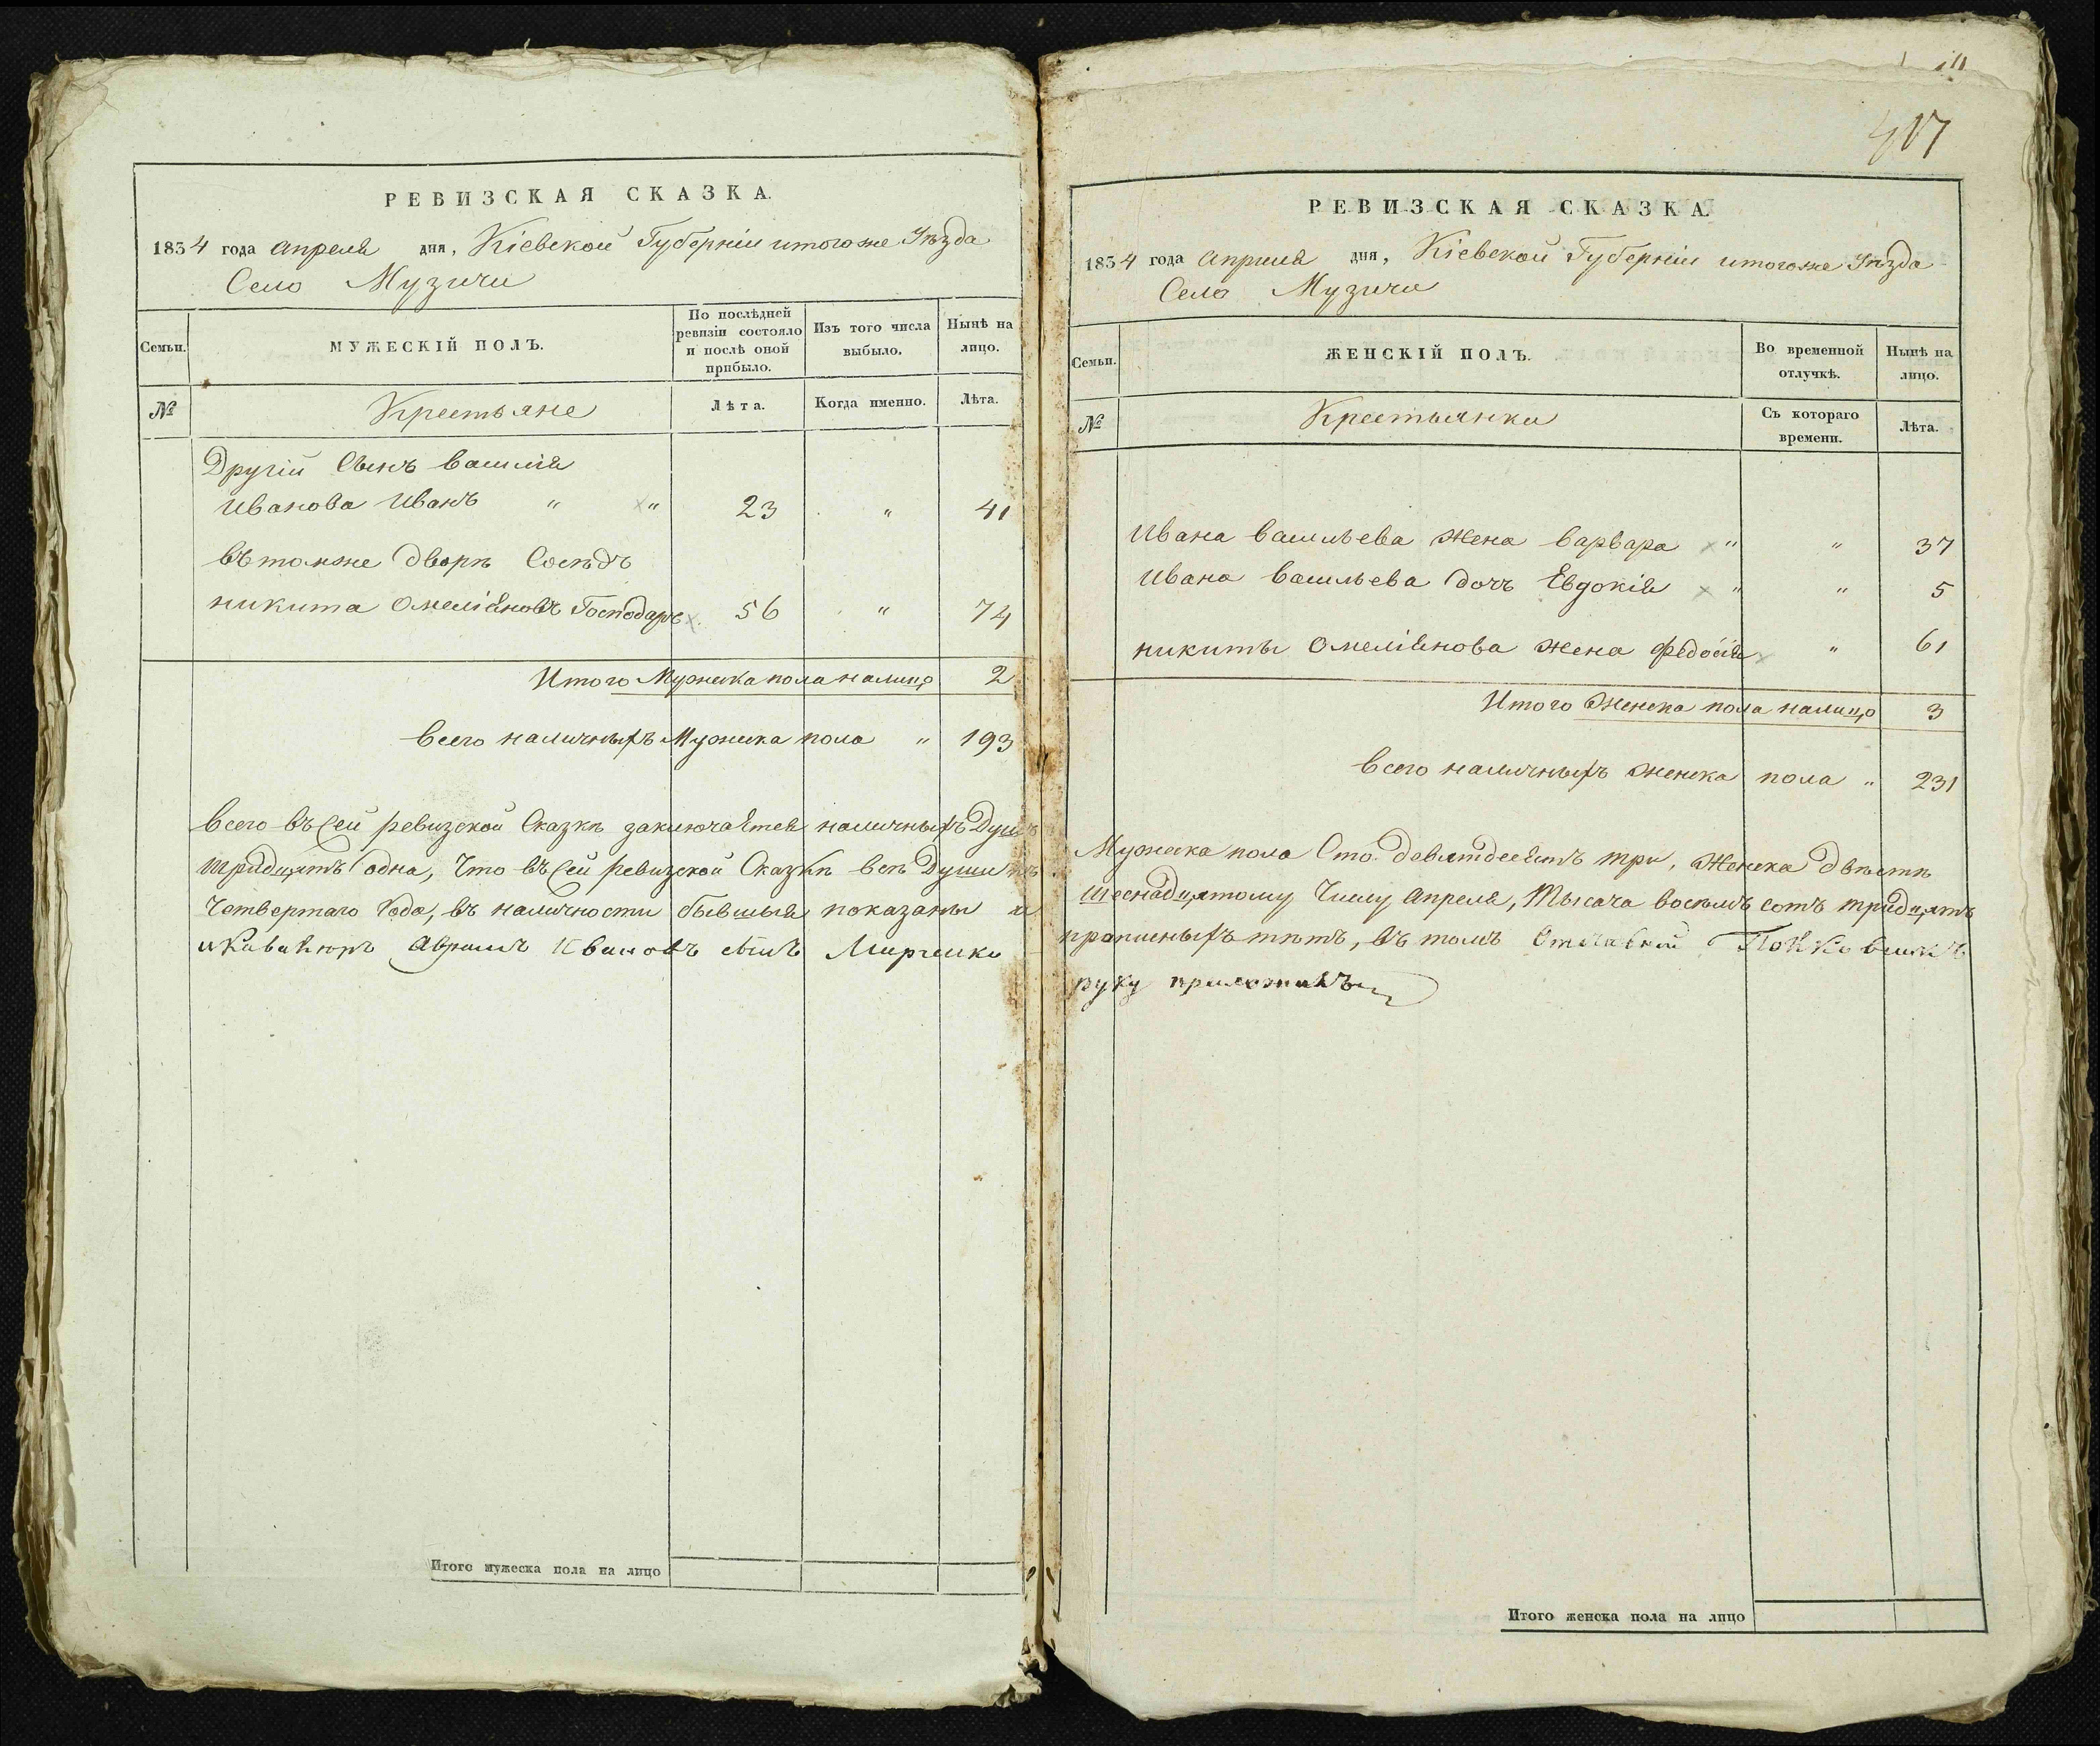 РЕВИЗСКАЯ СКАЗКА.
1834 года Апреля дня, Кіевской Губерніи итогоже Уѣзда
Село Музичи
Семьи.
МУЖЕСКІЙ ПОЛЪ.
По послѣдней ревизіи состояло и послѣ оной прибыло.
Изъ того числа выбыло.
Нынѣ на лицо.
№
Крестьяне
Лѣта.
Когда именно.
Лѣта.
Другій Сынъ Василія
Иванова Иванъ " " 23 " 41
Въ томже Дворѣ Сосѣдъ
Никита Омеліяновъ Господарь 56 " 74
Итого Мужеска пола налицо 2
Всего наличныхъ Мужеска пола " 193
Всего въ Сей ревизской Сказкѣ заключается наличныхъ Душъ
тридцать одна, Что въ Сей ревизской Сказкѣ всѣ Души
Четвертаго Года, въ наличности бывшыя показаны и
Ивановъ сынъ
417
РЕВИЗСКАЯ СКАЗКА.
1834 года Апреля дня, Кіевской Губерніи итогоже Уѣзда
Село Музичи
Семьи.
ЖЕНСКІЙ ПОЛЪ.
Во временной отлучкѣ.
Нынѣ на лицо.
№
Крестьянки
Съ котораго времени.
Лѣта.
Ивана Васильева Жена Варвара " " 37
Ивана Васильева Дочь Евдокія " " 5
Никиты Омеліянова Жена Федосія " 61
Итого Женска пола налицо 3
Всего наличныхъ Женска пола " 231
Мужеска пола Сто девятдесятъ три, Женска Двѣстѣ
шеснадцятому Числу Апреля, Тысяча восемъ сотъ тридцять
прописныхъ нѣтъ, въ томъ
руку приложилъ
Итого мужеска пола на лицо
Итого женска пола на лицо